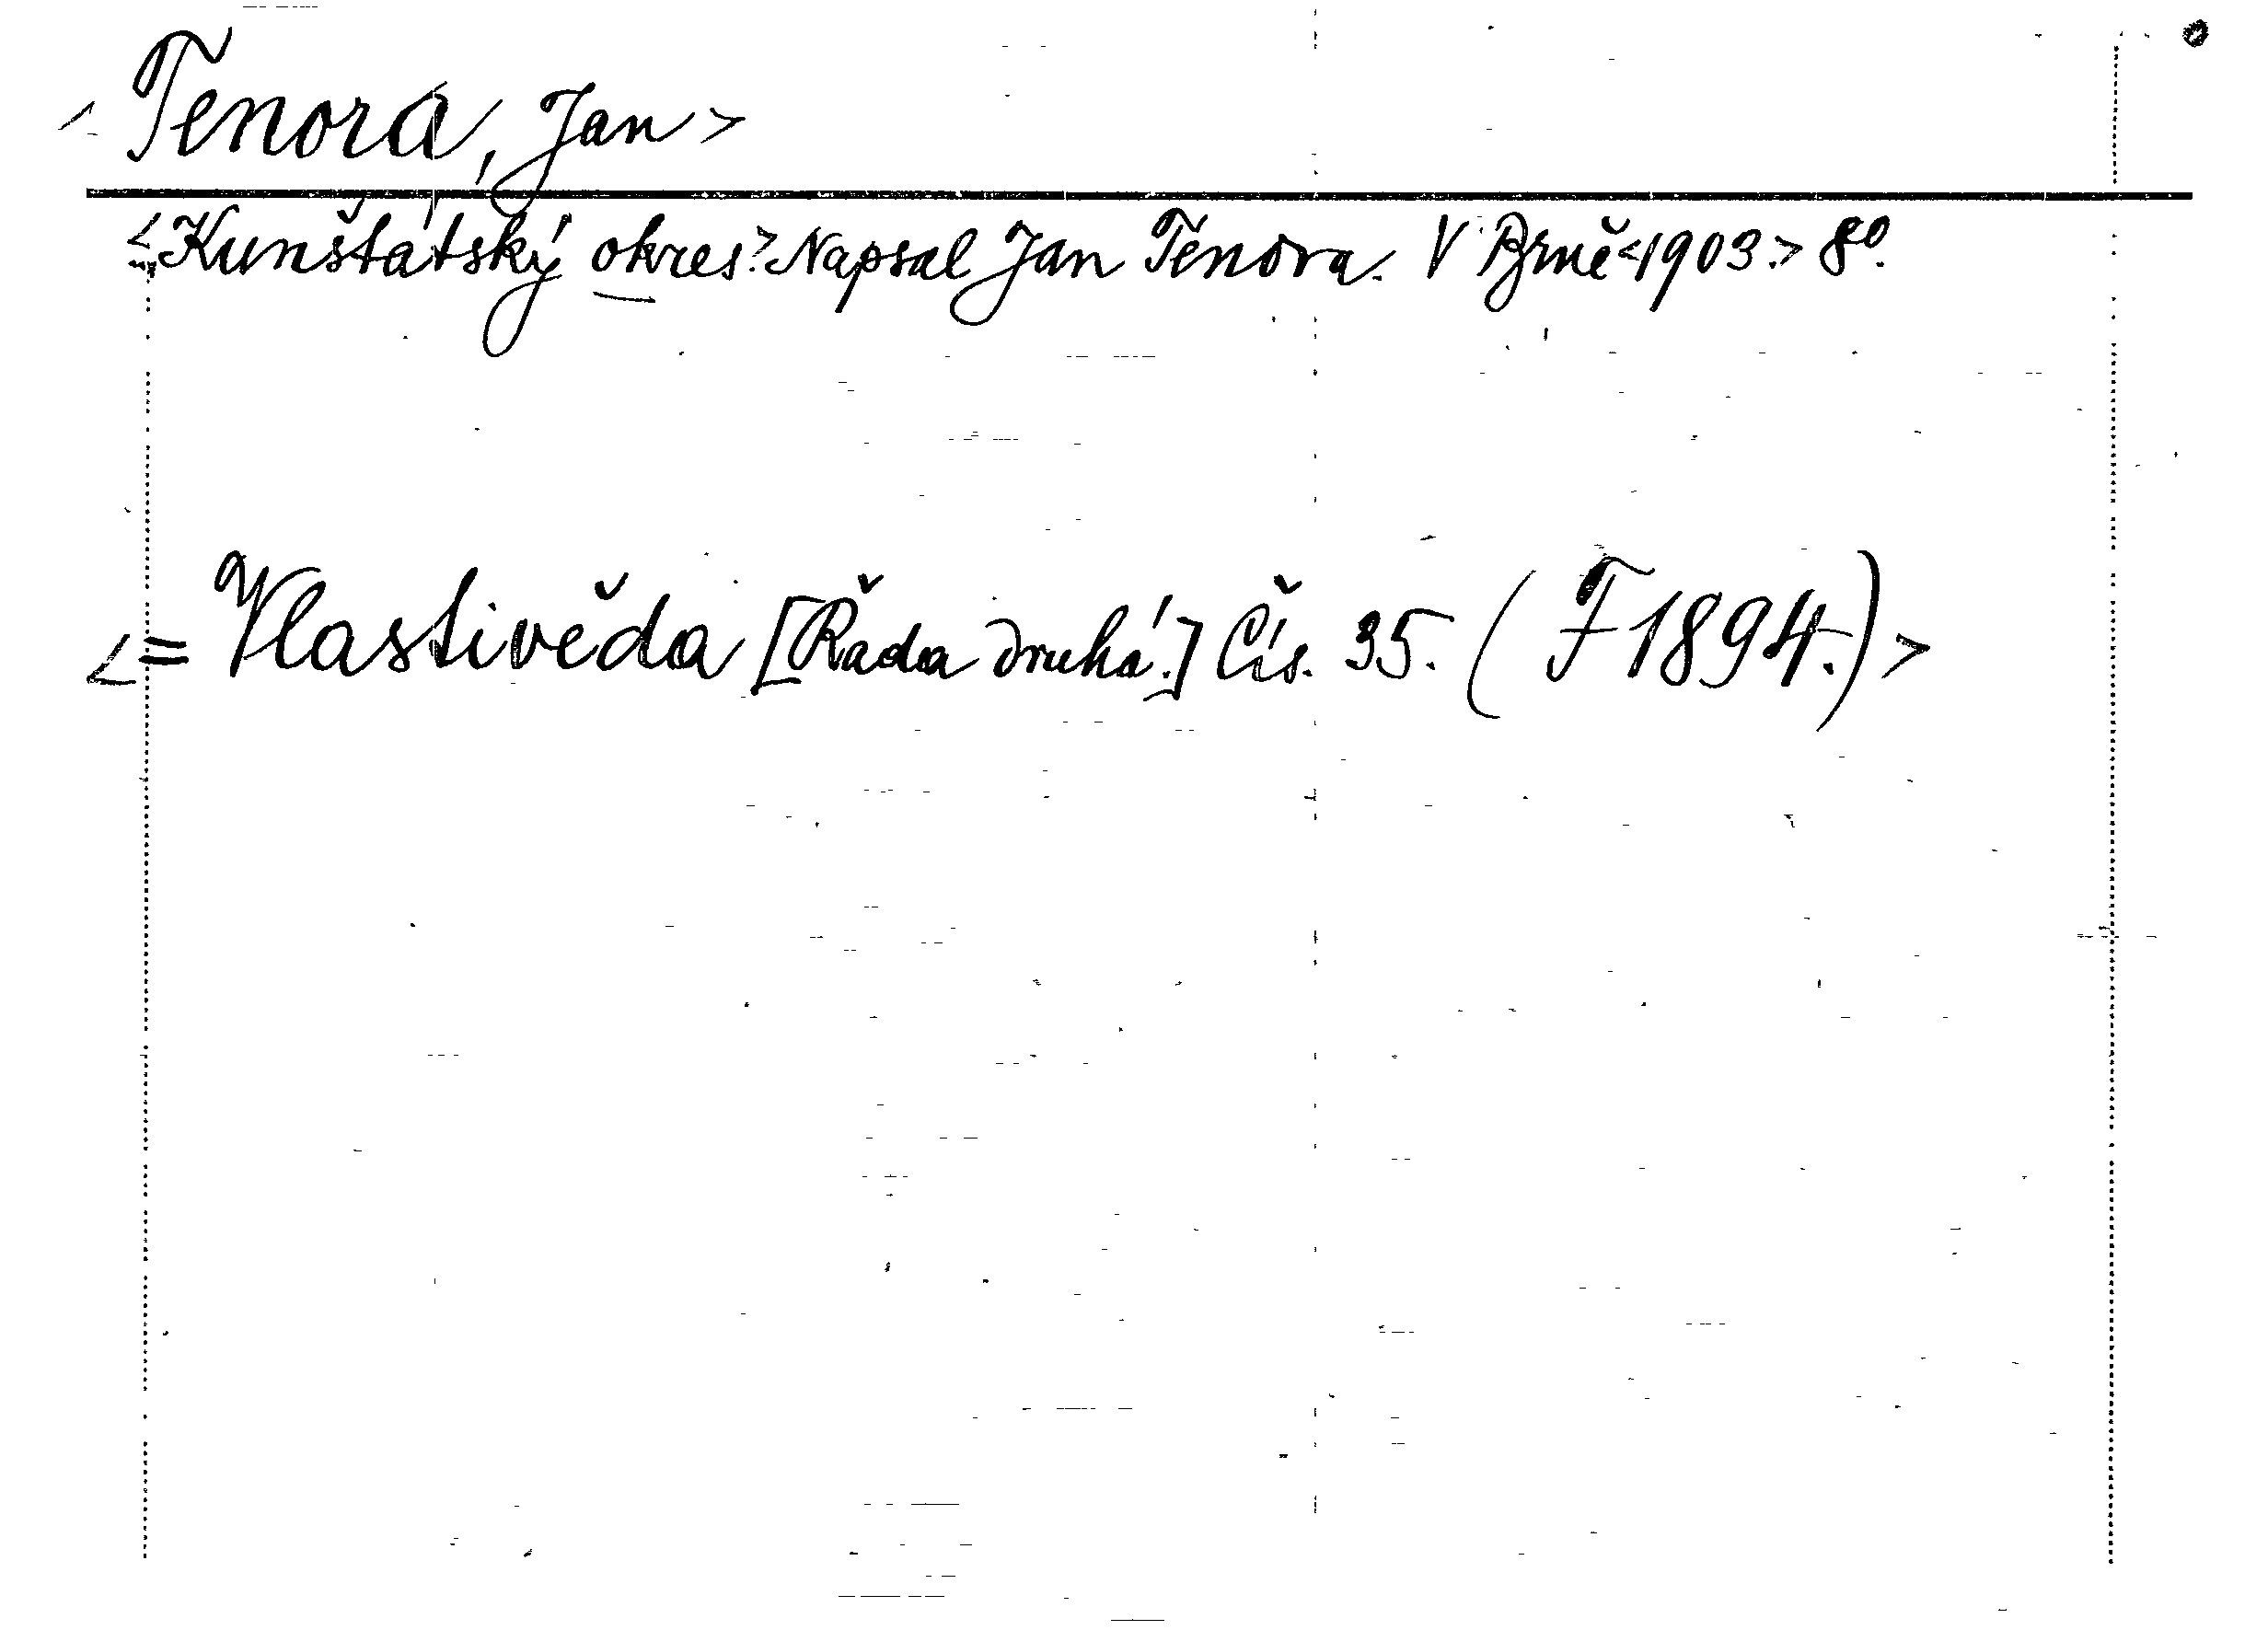 <Tenora, Jan>
<Kunštátský okres.> Napsal Jan Tenora. V Brně <1903.> 8º.
<= Vlastivěda [Řada druhá.] Čís. 35. (F 1894.)>